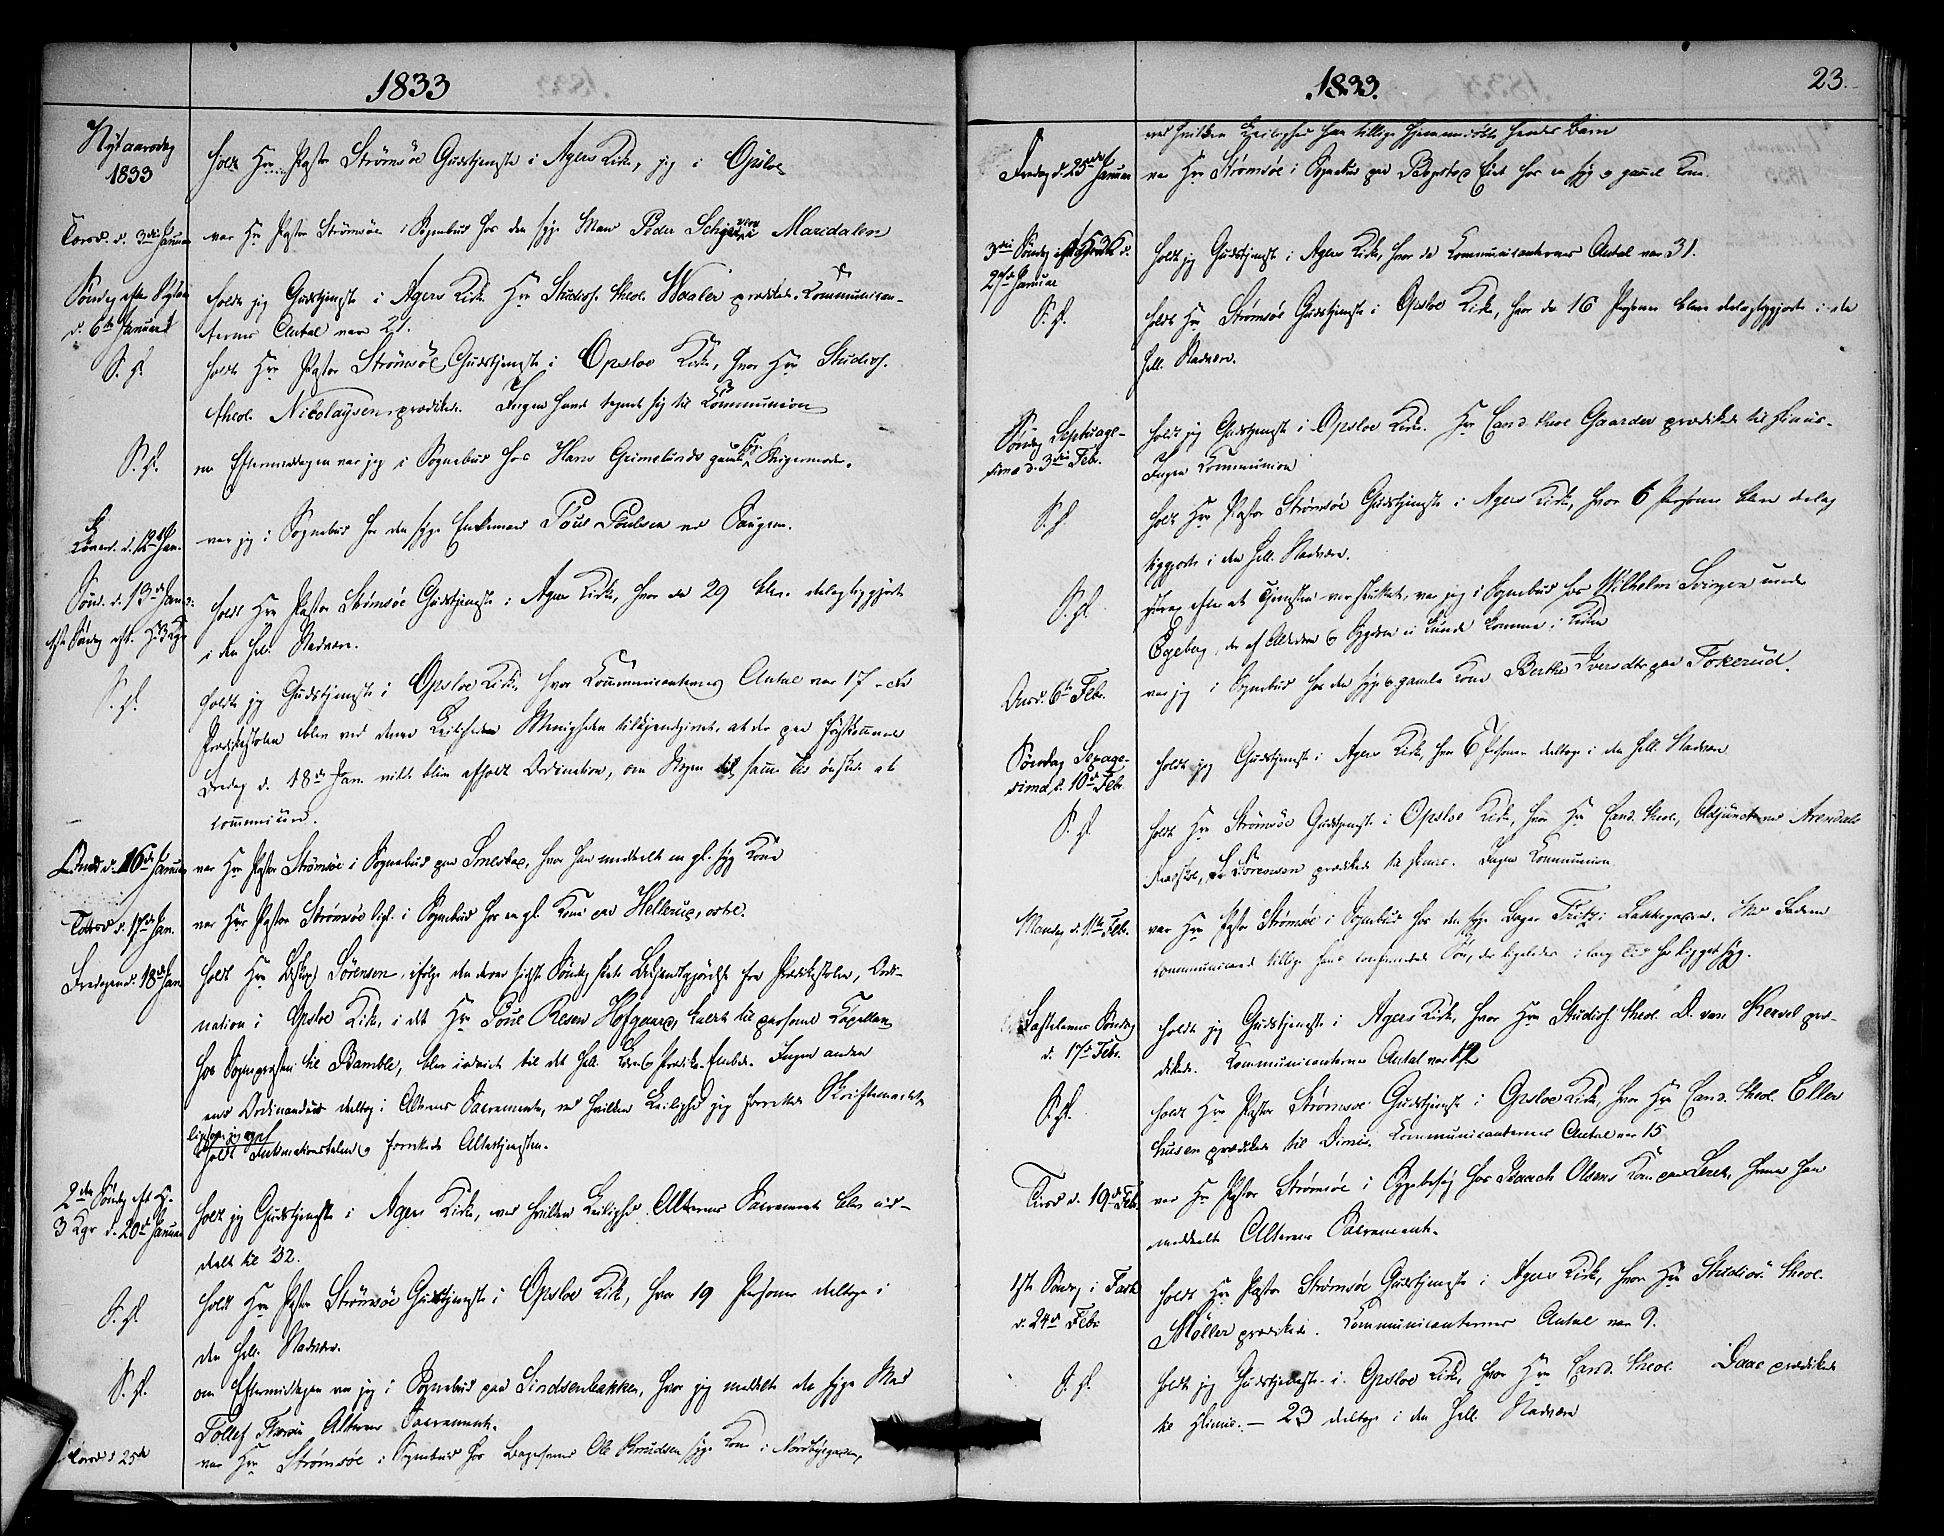 1833
Nytaarsdag
1833
holdt Hr Pastor Strömsöe Gudstjeneste i Agers Kirke, jeg i Opsloe
Torsd. d. 3die Januar
var Hr Pastor Strömsöe i Sognebud hos den syge Mand Peder i Maridalen
Söndag efter Nytaar
d. 6te Januar
holdt jeg Gudstjeneste i Agers Kirke. Hr Studios. theol. Waaler prædikede. Communican-
ternes Antal var 21.
S. D.
holdt Hr Pastor Strömsöe Gudstjeneste i Opsloe Kirke, hvor Hr Studios.
theol. Nicolaysen prædikede. Ingen havde tegnet sig til Communion
S. D.
om Eftermiddagen var jeg i Sognebud hos Hans Grimelunds gamle
Löverd. d. 12te Jan.
var jeg i Sognebud hos den syge Enkemand Poul Poulsen ved Saugen.
Sönd. d. 13de Jan.
1ste Söndag eft. H. 3 Kgr
holdt Hr Pastor Strömsöe Gudstjeneste i Agers Kirke, hvor der 29 blev delagtiggjorte
i den hel. Nadvere.
S. D.
holdt jeg Gudstjeneste i Opsloe Kirke, hvor Communicanternes Antal var 17 – Fra
Prædikestolen blev ved denne Leilighed Menigheden tilkjendegivet, at der paa förstkommende
Fredag d. 18de Jan. vilde blive afholdt Ordination, om Nogen til samme Tid önskede at
communicere.
Onsd. d. 16de Januar
var Hr Pastor Strömsöe i Sognebud paa Smestad, hvor han meddelte en gl. syg Kone
Torsd d. 17de Jan.
var Hr Pastor Strömsöe ligel. i Sognebud hos en gl. Kone paa Hellerud, östre.
Fredagen d. 18de Jan
holdt Hr Biskop Sörensen, ifölge den derom sidste Söndag skete Bekjendtgjörelse fra Prædikestolen, Ordi-
nation i Opsloe Kirke, i det Hr Poul Resen Hofgaard, kaldet til personel Kapellan
hos Sognepresten til Bamble, blev indviet til det hell. Lære og Prædike-Embede. Ingen anden
end Ordinandus deltog i Alterens Sacramente, ved hvilken Leilighed jeg forrettede Skriftemaalet,
ligesom jeg ogsaa
holdt Intimationstalen og forrettede Altertjenesten.
2den Söndag eft H.
3 Kgr d. 20de Januar
holdt jeg Gudstjeneste i Agers Kirke, ved hvilken Leilighed Alterens Sacramente blev ud-
delt til 32.
S. D.
holdt Hr Pastor Strömsöe Gudstjeneste i Opsloe Kirke, hvor 19 Personer deltoge i
den hell. Nadvere.
S. D.
om Eftermiddagen var jeg i Sognebud paa Sindsenbakken, hvor jeg meddelte den syge Mand
Tollef Alterens Sacramente.
Torsd d 25de
var Hr Strömsöe i Sognebud hos Ole Knudsens syge Kone i Nordbygaden,
1833.
23.
ved hvilken Leilighed han tillige hjemmedöbte hendes Barn
Fredag d. 25de Januar
var Hr Strömsöe i Sognebud paa Bogstad Eie hos en syg og gammel Kone.
3die Söndag eft H 3 K d.
27de Januar
holdt jeg Gudstjeneste i Agers Kirke, hvor da Communicanternes Antal var 31.
S. D.
holdt Hr Strömsöe Gudstjeneste i Opsloe Kirke, hvor da 16 Personer bleve delagtiggjorte i den
hell. Nadvere.
Söndag Septuage-
sima d. 3die Feb.
holdt jeg Gudstjeneste i Opsloe Kirke. Hr Cand. theol Gaarder prædikede til Dimis.
Ingen Communion
S. D.
holdt Hr Pastor Strömsöe Gudstjeneste i Agers Kirke, hvor 6 Personer blev delag
tiggjorte i den hell. Nadvere.
S. D.
strax efter at Tjenesten var sluttet, var jeg i Sognebud hos Wilhelm Svingen under
Egeberg, der af Alderdom og Sygdom ei kunde komme i Kirke
Onsd. 6te Feb.
var jeg i Sognebud hos den syge og gamle Kone Berthe Iversdtr paa Tokerud.
Söndag Sexage-
sima, d. 10de Febr
holdt jeg Gudstjeneste i Agers Kirke, hvor 6 Personer deltoge i den hell. Nadvere
S. D.
holdt Hr Strömsöe Gudstjeneste i Opsloe Kirke, hvor Hr Cand. theol., Adjunct ved Arendals
Sörensen prædikede til Dimis. Ingen Communion
Mandag d. 11te Feb.
var Hr Pastor Strömsöe i Sognebud hos den syge Bager Fritz i Lakkegaden. Med Faderen
communicerede tillige hans confirmerede Sön, der ligeledes i lang Tid har ligget syg.
Fastelavns Söndag
d. 17de Febr.
holdt jeg Gudstjeneste i Agers Kirke, hvor Hr Studios. theol. D. von Krevel præ-
dikede. Communicanternes Antal var 12
S. D.
holdt Hr Pastor Strömsoe Gudstjeneste i Opsloe Kirke, hvor Hr Cand. theol. Eller
husen prædikede til Dimis. Communicanternes Antal var 15
Tirsd d. 19de Feb.
var Hr Pastor Strömsöe i Sygebesög hos Isaach Olsens Kone paa Leret, hvem han
meddeelte Alterens Sacramente.
1ste Söndag i Faste
d. 24de Febr
holdt Hr Pastor Strömsöe Gudstjeneste i Agers Kirke, hvor Hr Studios. theol.
Möller prædikede. Communicanternes Antal var 9.
S. D.
holdt jeg Gudstjeneste i Opsloe Kirke, hvor Hr Cand. theol. Daae prædikede
til Dimis. – 23 deltoge i den hell. Nadvere